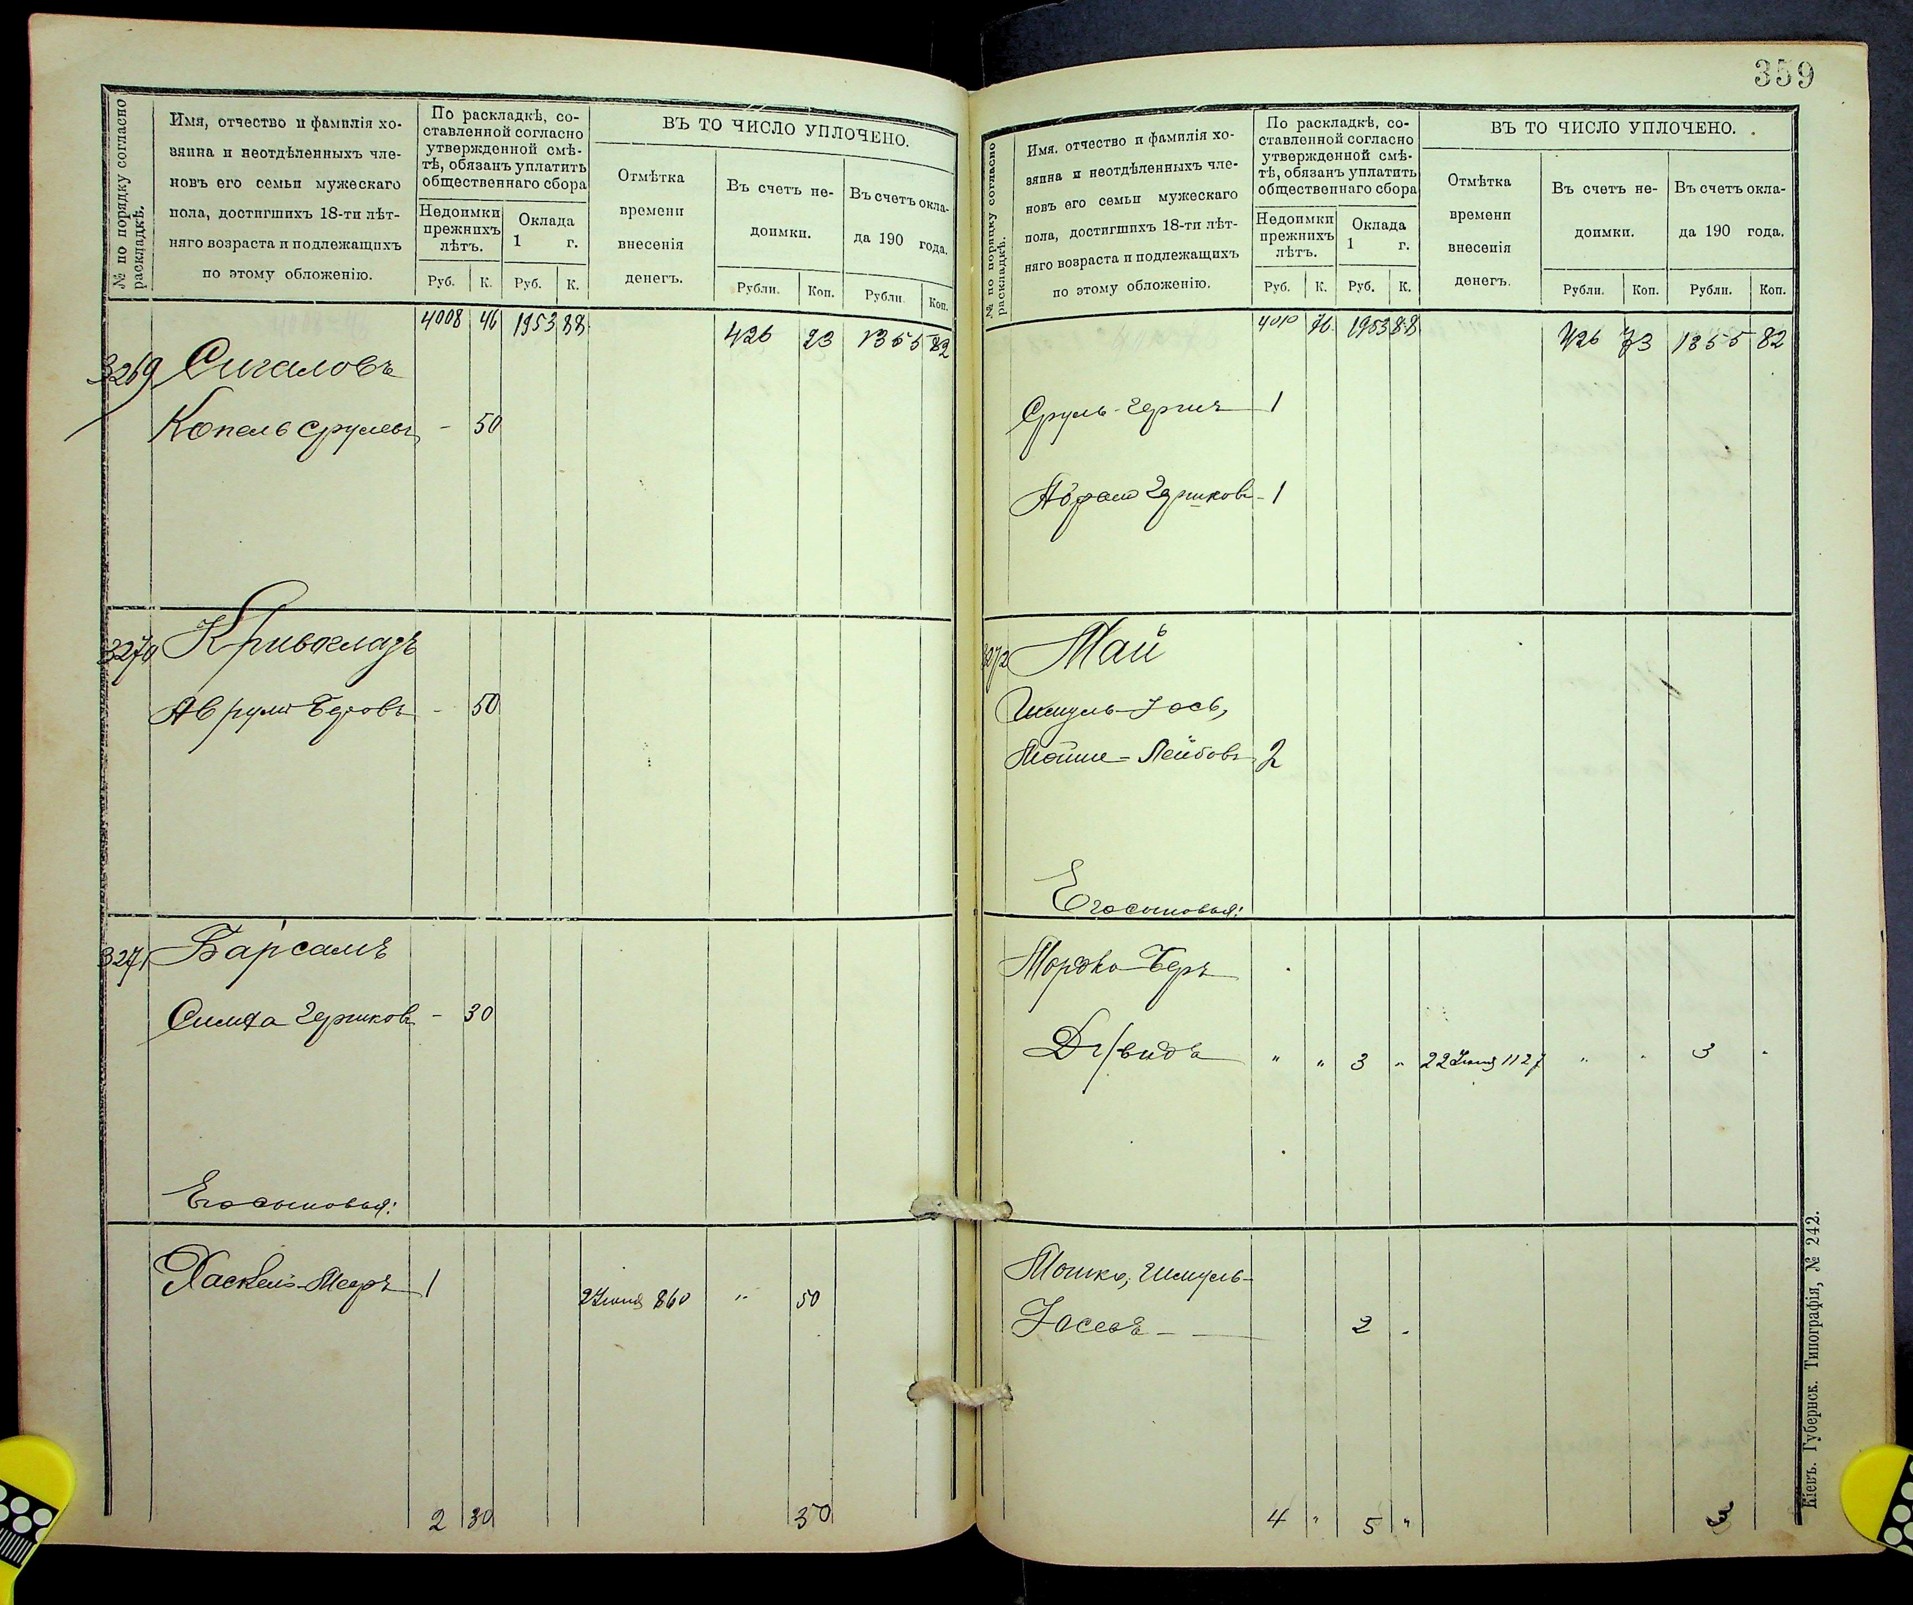 № по порядку согласно раскладкѣ.
Имя, отчество и фамилія хо-
зяина и неотдѣленныхъ чле-
новъ его семьи мужескаго
пола, достигшихъ 18-ти лѣт-
няго возраста и подлежащихъ
по этому обложенію.
По раскладкѣ, со-
ставленной согласно
утвержденной смѣ-
тѣ, обязанъ уплатить
общественнаго сбора
Недоимки
прежнихъ
лѣтъ.
Оклада
1 г.
Руб. К. Руб. К.
ВЪ ТО ЧИСЛО УПЛОЧЕНО.
Отмѣтка
времени
внесенія
денегъ.
Въ счетъ не-
доимки.
Въ счетъ окла-
да 190 года.
Рубли. Коп. Рубли Коп.
4008 46 1953 88 426 23 1355 82
3269 Сигаловъ
Копель Срулевъ - 50
3270 Кривоглазъ
Аврумъ Беровъ - 50
3271 Барсамъ
Симха Гершковъ - 30
Его сыновья:
Хаскель-Мееръ 1 2 Іюня 860 " 50
2 30 50
359
№ по порядку согласно раскладкѣ.
Имя, отчество и фамилія хо-
зяина и неотдѣленныхъ чле-
новъ его семьи мужескаго
пола, достигшихъ 18-ти лѣт-
няго возраста и подлежащихъ
по этому обложенію.
По раскладкѣ, со-
ставленной согласно
утвержденной смѣ-
тѣ, обязанъ уплатить
общественнаго сбора
Недоимки
прежнихъ
лѣтъ.
Оклада
1 г.
Руб. К. Руб. К.
ВЪ ТО ЧИСЛО УПЛОЧЕНО.
Отмѣтка
времени
внесенія
денегъ.
Въ счетъ не-
доимки.
Въ счетъ окла-
да 190 года.
Рубли. Коп. Рубли. Коп.
4010 76 1953 88 426 73 1355 82
Сруль-Герш 1
Абрам Гершковъ - 1
3272 Май
Шмуль-Іось,
Мойше-Лейбовъ 2
Его сыновья:
Мордко-Беръ
Давидъ " " 3 " 22 Іюня 1127 " " 3 "
Мошко, Шмуль-
Іосевъ - — 2 "
4 " 5 " 3
Кіевъ. Губернск. Типографія, № 242.